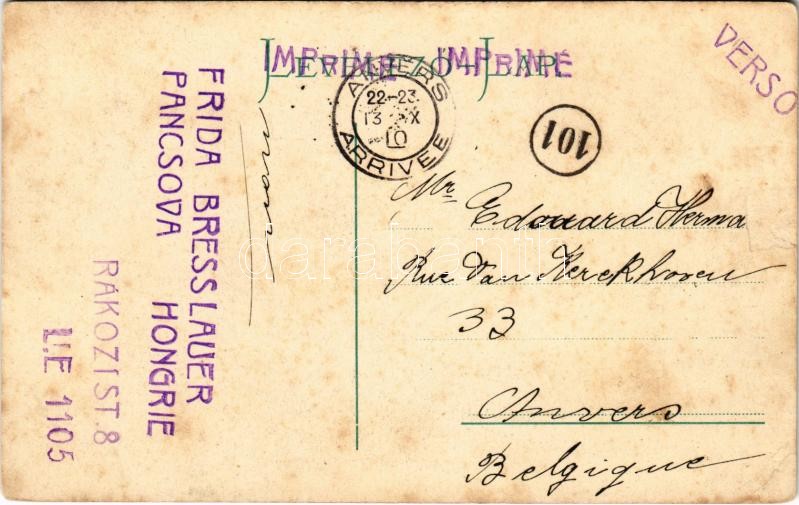 IMPRIMÉ IMPRIMÉ
LEVELEZŐ-LAP.
VERSO
ANVERS
22-23
13 X
10
ARRIVÉE
101
FRIDA BRESSLAUER
PANCSOVA HONGRIE
RÁKOZI ST. 8
U,E 1105
Mr Edouard Herma
Rue Van Kerckhoven
33
Anvers
Belgique
darabanth